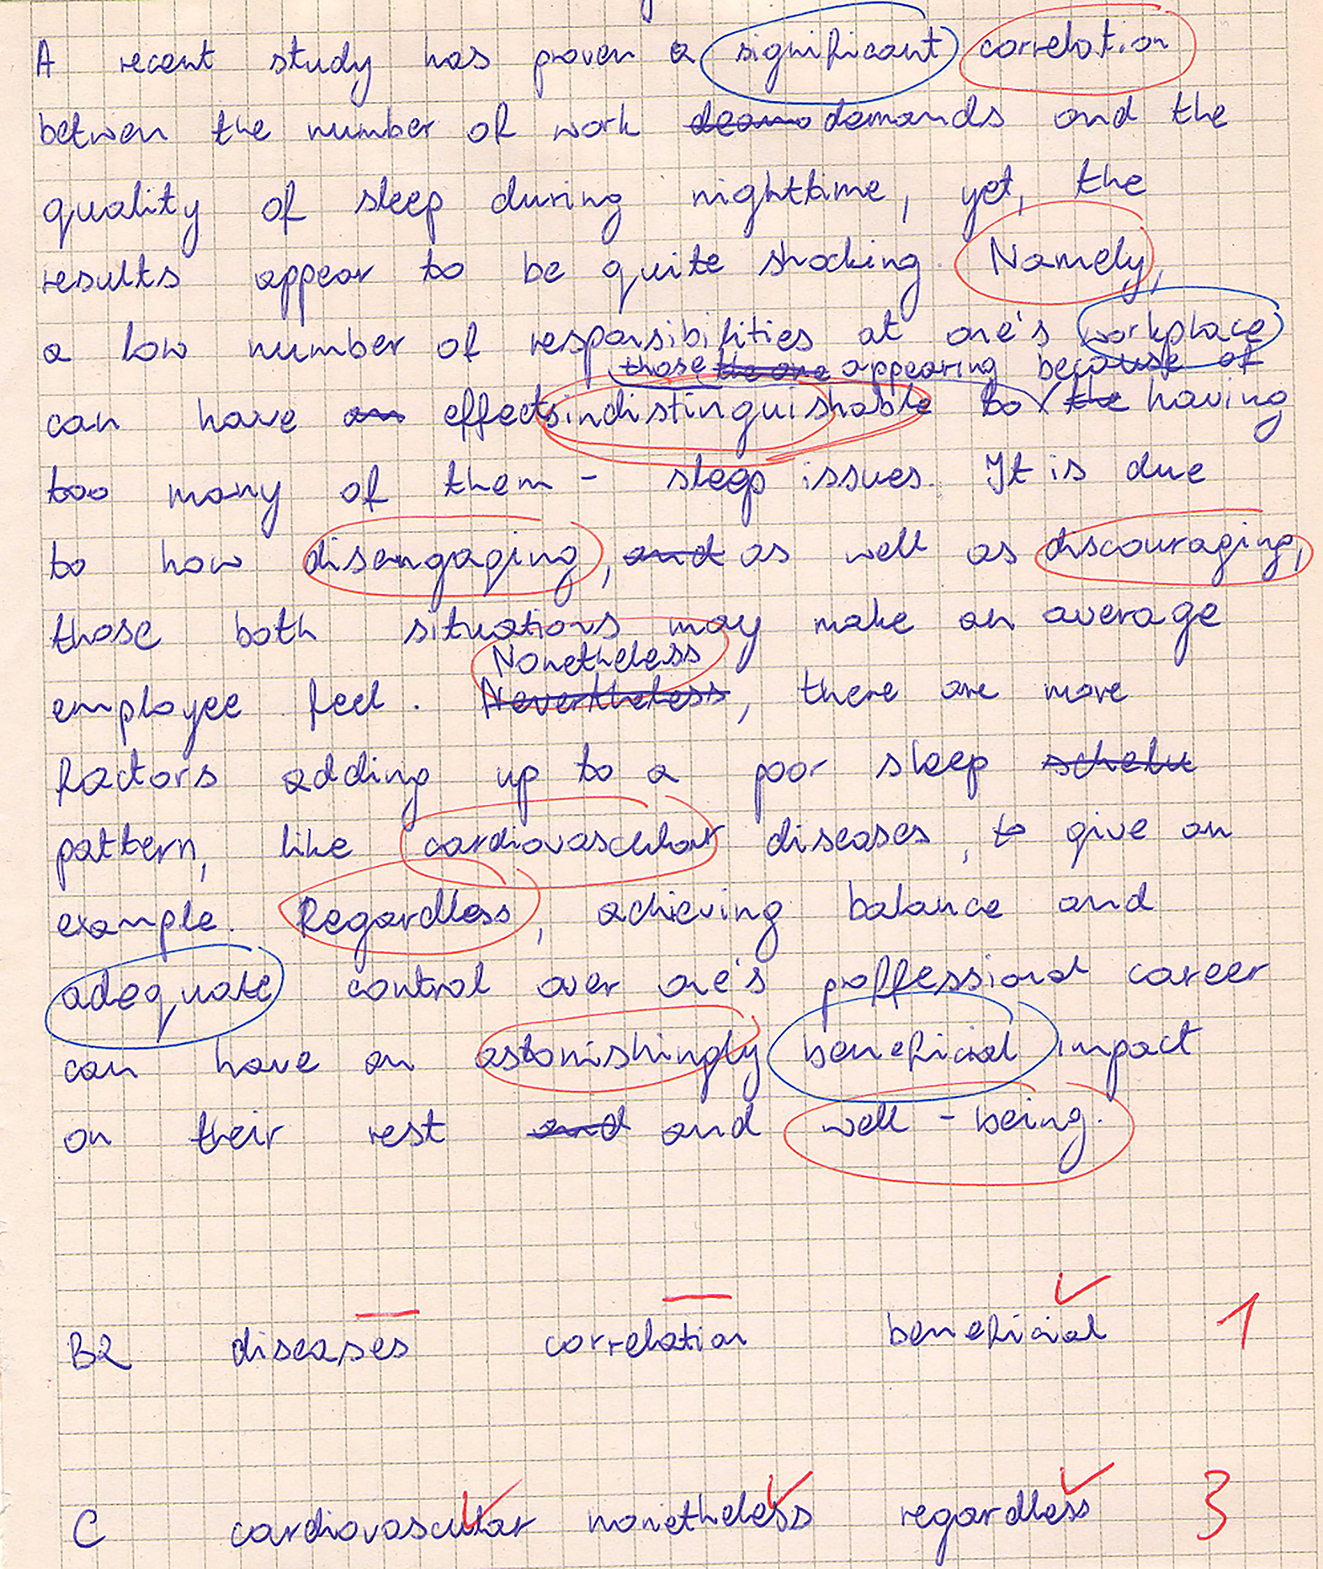 A recent study has proven a significant correlation
betwen the number of work demands and the
quality of sleep during nighttime, yet, the
results appear to be quite shocking. Namely,
a low number of responsibilities at one's workplace
those the one appearing because of
can have an effects indistinguishable to the having
too many of them - sleep issues. It is due
to how disengaging, and as well as discouraging,
those both situations may make an average
Nonetheless
employee feel. Nevertheless, there are more
factors adding up to a poor sleep
pattern, like cardiovascular diseases, to give an
example. Regardless, achieving balance and
adequate control over one's proffessional career
can have an astonishingly beneficial impact
on their rest and and well-being.
B2 diseases correlation beneficial 1
C cardiovascular nonetheless regardless 3